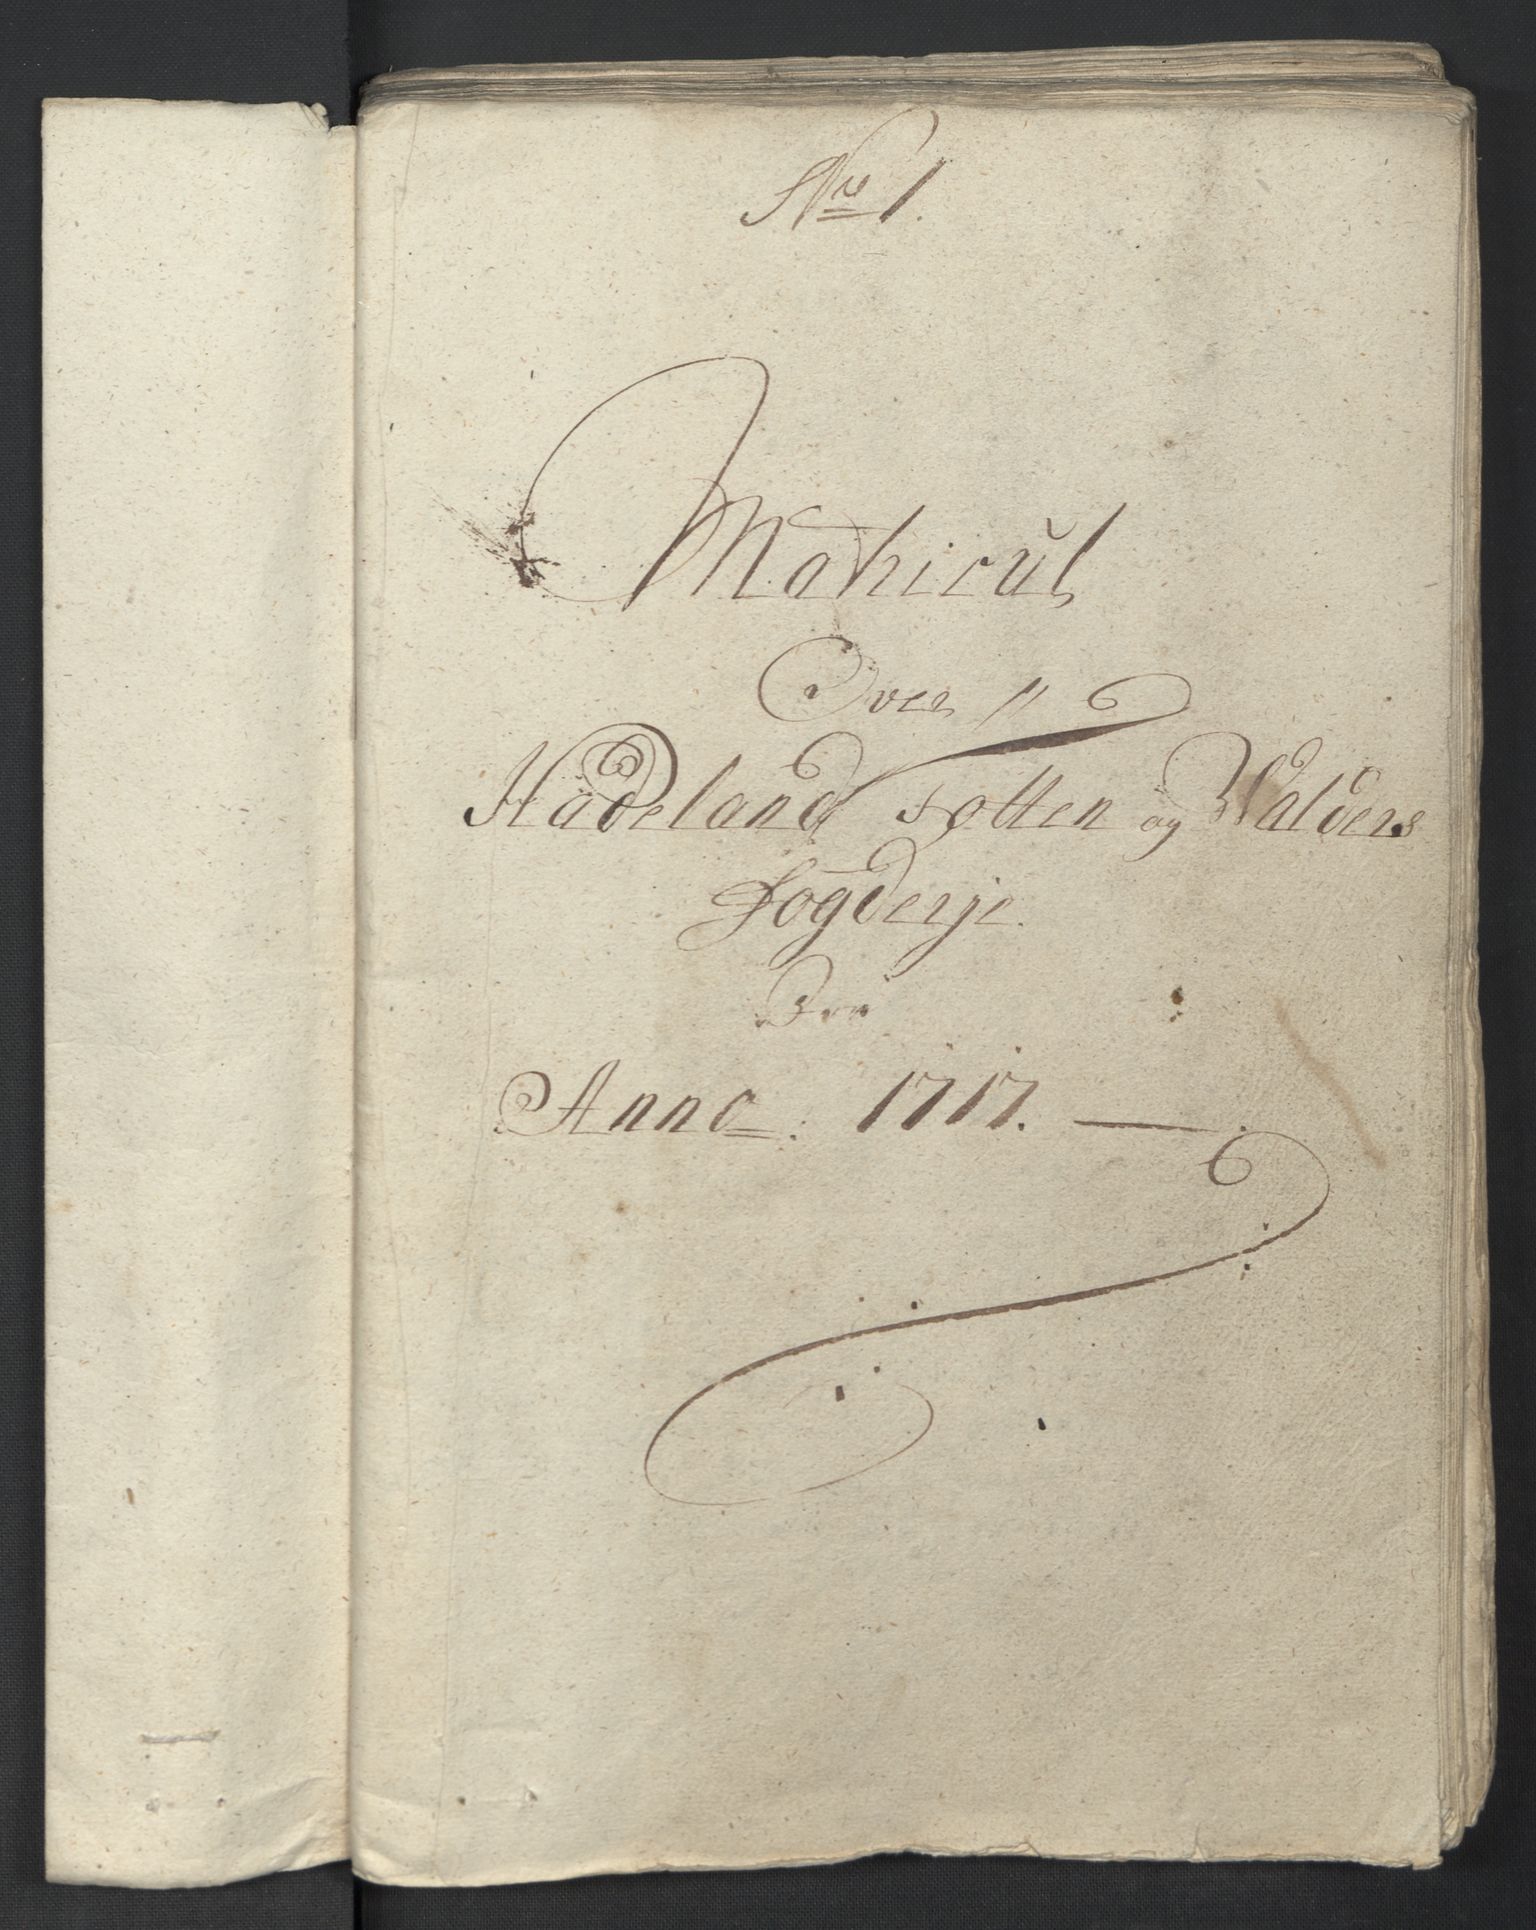 No 1.
Matricul
Over
Hadeland Totten og Walders
Fogderje.
Pro
Anno: 1717.